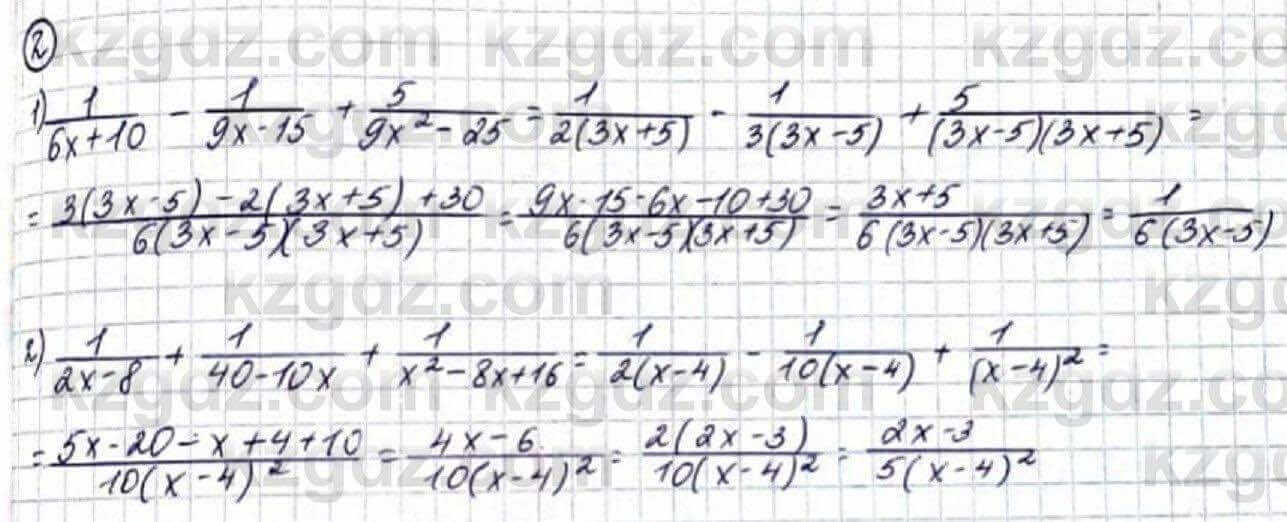 kzgdz.com kzgdz.com kzgdz.com
②
1) 1/(6x+10) - 1/(9x-15) + 5/(9x²-25) = 1/(2(3x+5)) - 1/(3(3x-5)) + 5/((3x-5)(3x+5)) =
= (3(3x-5)-2(3x+5)+30)/(6(3x-5)(3x+5)) = (9x-15-6x-10+30)/(6(3x-5)(3x+5)) = (3x+5)/(6(3x-5)(3x+5)) = 1/(6(3x-5))
kzgdz.com kzgdz.com
2) 1/(2x-8) + 1/(40-10x) + 1/(x²-8x+16) = 1/(2(x-4)) - 1/(10(x-4)) + 1/(x-4)² =
= (5x-20-x+4+10)/(10(x-4)²) = (4x-6)/(10(x-4)²) = (2(2x-3))/(10(x-4)²) = (2x-3)/(5(x-4)²)